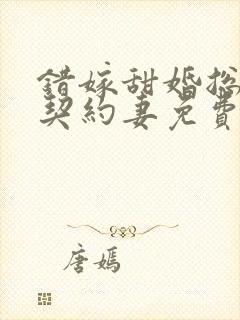 錯嫁甜婚總
契約妻免費
唐嫣